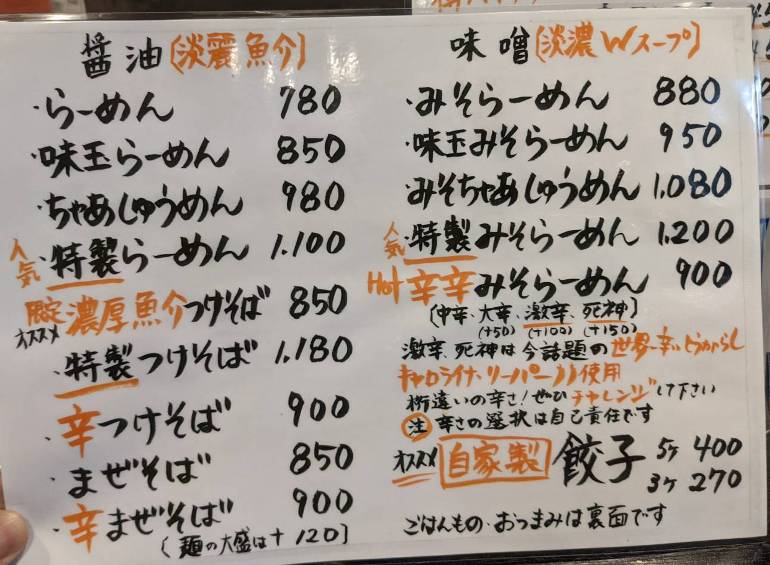 醤油(淡麗魚介)
・らーめん 780
・味玉らーめん 850
・ちゃあしゅうめん 980
人気・特製らーめん 1.100
オススメ 濃厚魚介つけそば 850
・特製つけそば 1.180
・辛つけそば 900
・まぜそば 850
・辛まぜそば 900
(麺の大盛は+120)
味噌(淡濃Wスープ)
・みそらーめん 880
・味玉みそらーめん 950
・みそちゃあしゅうめん 1.080
人気・特製みそらーめん 1.200
Hot 辛辛みそらーめん 900
(中辛、大辛、激辛、死神)
(+50) (+100) (+150)
激辛、死神は今話題の世界一辛いとうがらし
キャロライナ・リーパー使用
桁違いの辛さ!ぜひチャレンジして下さい
注 辛さの選択は自己責任です
オススメ 自家製 餃子 5ケ 400
3ケ 270
ごはんもの・おつまみは裏面です